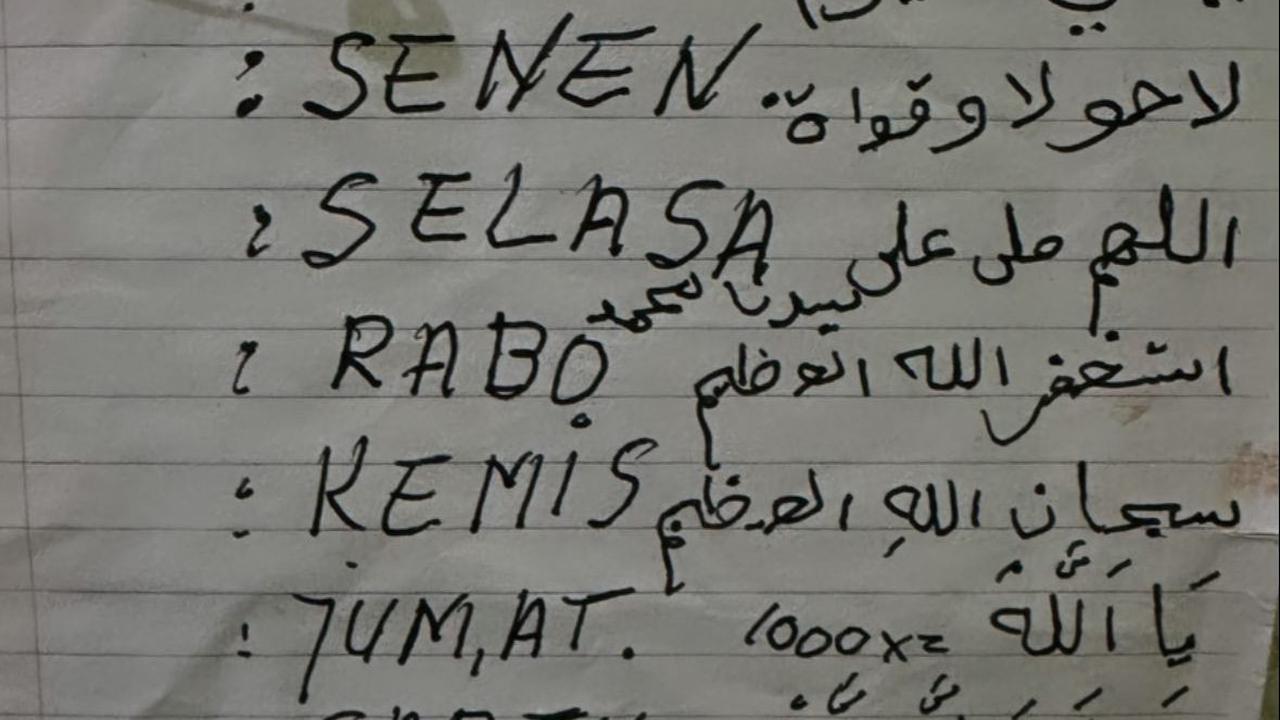 : SENEN لا حو لا وقواة
: SELASA اللهم صلى على
سيدنا محمد
: RABO استغفر الله العظيم
: KEMIS سبحان اللهِ العظيم
: JUM,AT. 1000x= يَا اَللَّهُ